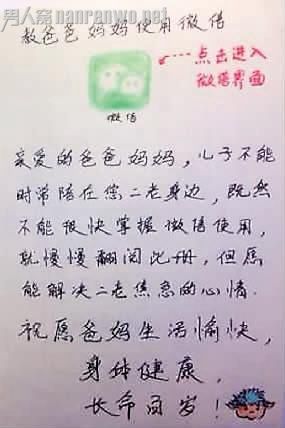 男人窝 nanrenwo.net
教爸爸妈妈使用微信
点击进入
微信界面
微信
亲爱的爸爸妈妈，儿子不能
时常陪在您二老身边，既然
不能很快掌握微信使用，
就慢慢翻阅此册，但愿
能解决二老焦急的心情.
祝愿爸妈生活愉快，
身体健康，
长命百岁！